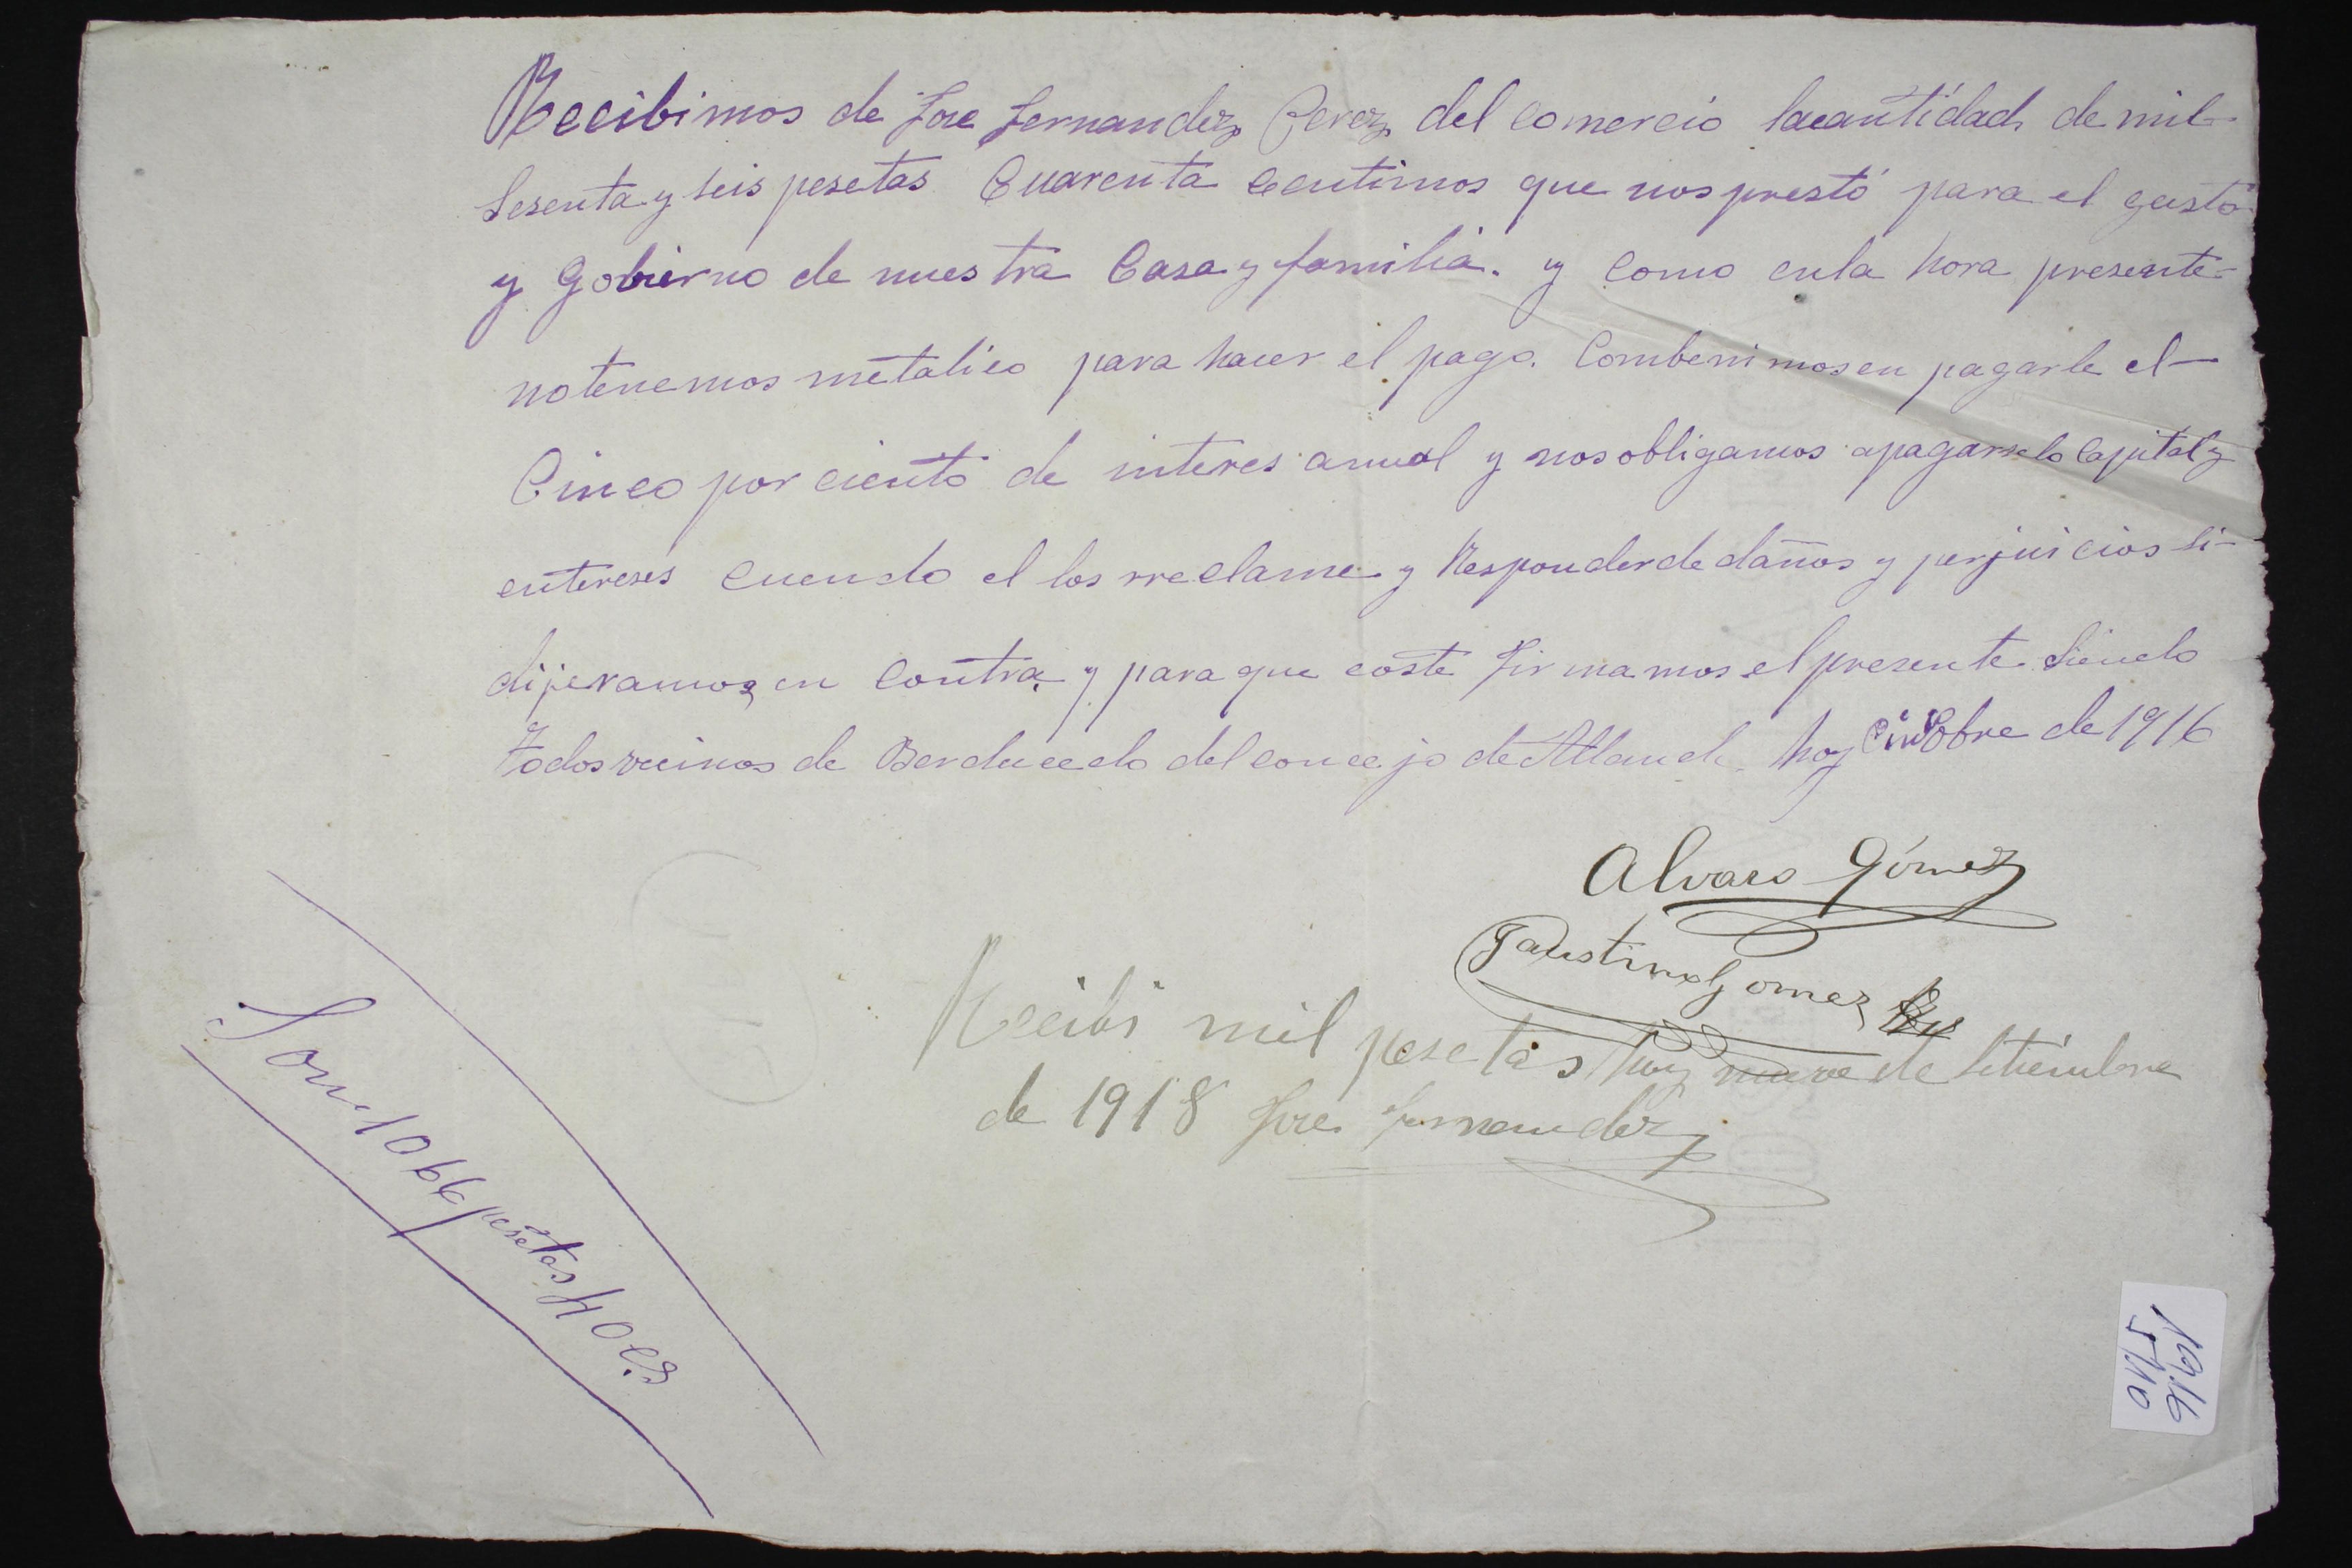 Recibimos de Jose Fernandez Perez del comercio lacantidad de mil
Sesenta y seis pesetas Cuarenta Centimos que nos prestó para el gasto
y Gobierno de nuestra Casa y familia. y como enla hora presente
notenemos metalico para hacer el pago. Combenimosen pagarle el
Cinco por ciento de interes anual y nosobligamos apagarselo Capital y
entereses cuendo el los rreclame y Responder de daños y perjuicios si
dijeramos en contra, y para que coste firmamos el presente Siendo
Todos vecinos de Berducedo del concejo de Alland hoy Obre de 1916
Alvaro Gómez
Faustino Gomez
Recibi mil pesetas hoy nueve de Setiembre
de 1918 Jose Fernandez
Son 1066 pesetas 40 cs
1916
5/10